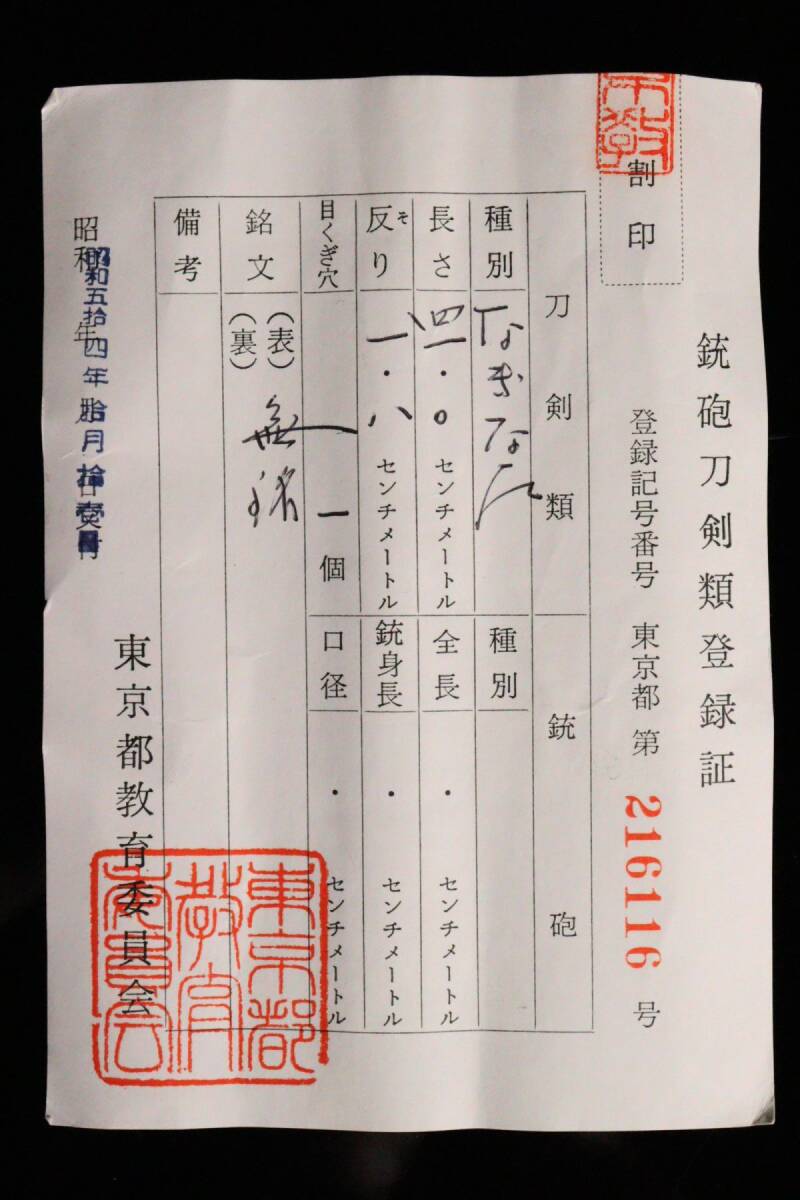 割印
銃砲刀剣類登録証
登録記号番号 東京都 第 216116 号
刀剣類 銃砲
種別 なぎなた 種別
長さ 四一・〇 センチメートル 全長 ・ センチメートル
反り そ 一・八 センチメートル 銃身長 ・ センチメートル
目くぎ穴 一 個 口径 ・ センチメートル
銘文 (表) 無銘
(裏)
備考
昭和 年
昭和五拾四年拾月拾壱日
東京都教育委員会
東京都
教育
委員会